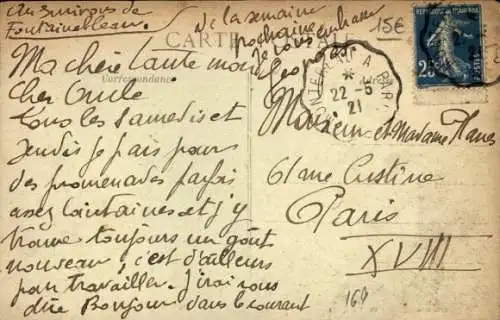 Aux environs de
Fontainebleau.
de la semaine
prochaine
Je vous embrasse
Georges
15€
CARTE POSTALE
Correspondance
Ma chère tante mon
cher Oncle
Tous les samedis et
Jeudis je fais pour
des promenades parfois
assez lointaines et j'y
trouve toujours un goût
nouveau, c'est d'ailleurs
pour travailler. J'irai vous
dire Bonjour dans le courant
A PARIS
22-5
21
25
Monsieur et Madame
61 rue Custine
Paris
XVIII